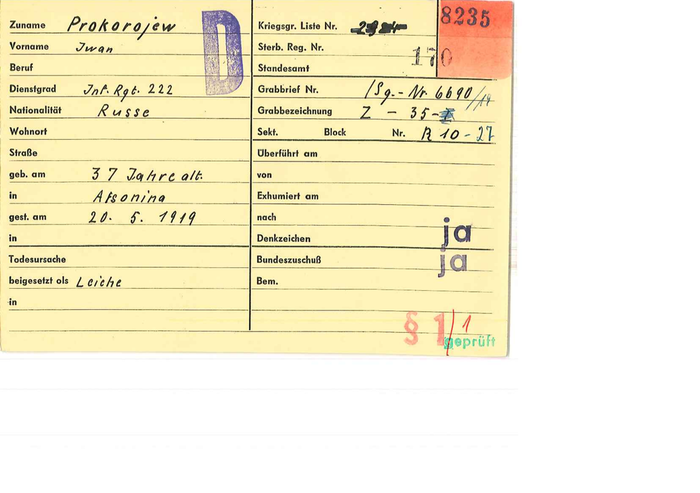 Zuname Prokorojew
Vorname Iwan
Beruf
Dienstgrad Inf. Rgt. 222
Nationalität Russe
Wohnort
Straße
geb. am 37 Jahre alt.
in Afsonina
gest. am 20. 5. 1919
in
Todesursache
beigesetzt als Leiche
in
D
Kriegsgr. Liste Nr.
8235
Sterb. Reg. Nr.
170
Standesamt
Grabbrief Nr. /Sg.-Nr 6690/
Grabbezeichnung Z - 35-
Sekt. Block Nr. R 10-27
Überführt am
von
Exhumiert am
nach
Denkzeichen ja
Bundeszuschuß ja
Bem.
§ 1/1
geprüft